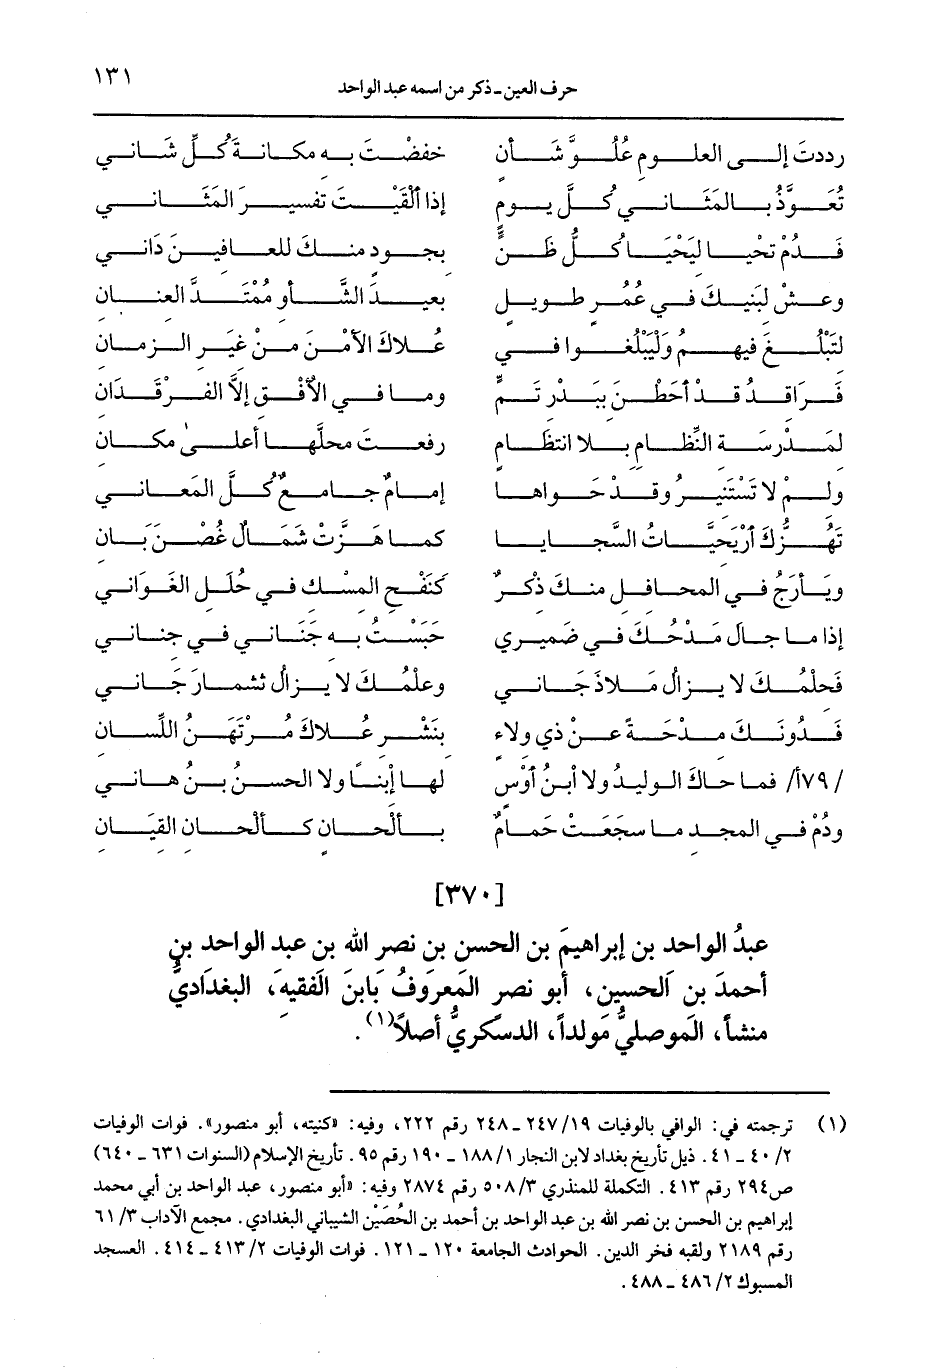 ١٣١
حرف العين ـ ذكر من اسمه عبد الواحد
رددتَ إلى العلوم عُلُوَّ شأنٍ خفضْتَ به مكانةَ كُلِّ شَاني
تُعَوَّذُ بالمَثَاني كُلَّ يومٍ إذا ألْقَيْتَ تفسيرَ المَثَاني
فَدُمْ تحيا ليَحْيَا كُلُّ ظَنٍّ بجودٍ منكَ للعافينَ دَاني
وعشْ لبَنيكَ في عُمُرٍ طويلٍ بعيدَ الشَّأو مُمْتَدَّ العنان
لتَبْلُغَ فيهمُ وَلْيَبْلُغوا في عُلاكَ الأمْنَ منْ غيَر الزمان
فَرَاقدُ قدْ أحَطْنَ ببَدْر تَمٍّ وما في الأفْق إلاَّ الفرْقَدَان
لمَدْرسَة النِّظَام بلا انتظَامٍ رفعتَ محلَّها أعلىٰ مكان
ولمْ لا تَسْتَنيرُ وقدْ حَوَاها إمامٌ جامعٌ كُلَّ المَعاني
تهُزُّكَ أرْيَحيَّاتُ السَّجايا كما هَزَّتْ شَمَالٌ غُصْنَ بَان
ويَأرَجُ في المحافل منكَ ذكْرٌ كَنَفْح المسْك في حُلَل الغَواني
إذا ما جالَ مَدْحُكَ في ضَميري حَبَسْتُ به جَنَاني في جناني
فَحلْمُكَ لا يزالُ مَلاذَ جَاني وعلْمُكَ لا يزالُ ثمارَ جَاني
فَدُونَكَ مدْحَةً عنْ ذي ولاء بنَشْر عُلاكَ مُرْتَهَنُ اللِّسان
/ ٧٩أ/ فما حاكَ الوليدُ ولا أبنُ أوْسٍ لها إبناً ولا الحسنُ بنُ هاني
ودُمْ في المجد ما سجَعَتْ حَمامٌ بألْحانٍ كألْحان القيَان
[٣٧٠]
عبدُ الواحد بن إبراهيمَ بن الحسن بن نصر الله بن عبد الواحد بن
أحمدَ بن الحسين، أبو نصرٍ المَعروفُ بَابنَ الفَقيهَ، البغدَاديُّ
منشأً، المَوصليُّ مَولداً، الدسكَريُّ أصلاً(١).
(١) ترجمته في: الوافي بالوفيات ١٩/ ٢٤٧ ـ ٢٤٨ رقم ٢٢٢، وفيه: «كنيته، أبو منصور». فوات الوفيات
٢/ ٤٠ ـ ٤١. ذيل تأريخ بغداد لابن النجار ١/ ١٨٨ ـ ١٩٠ رقم ٩٥. تأريخ الإسلام (السنوات ٦٣١ ـ ٦٤٠)
ص٢٩٤ رقم ٤١٣. التكملة للمنذري ٣/ ٥٠٨ رقم ٢٨٧٤ وفيه: «أبو منصور، عبد الواحد بن أبي محمد
إبراهيم بن الحسن بن نصر الله بن عبد الواحد بن أحمد بن الحُصَيْن الشيباني البغدادي. مجمع الآداب ٣/ ٦١
رقم ٢١٨٩ ولقبه فخر الدين. الحوادث الجامعة ١٢٠ ـ ١٢١. فوات الوفيات ٢/ ٤١٣ ـ ٤١٤. العسجد
المسبوك ٢/ ٤٨٦ ـ ٤٨٨.